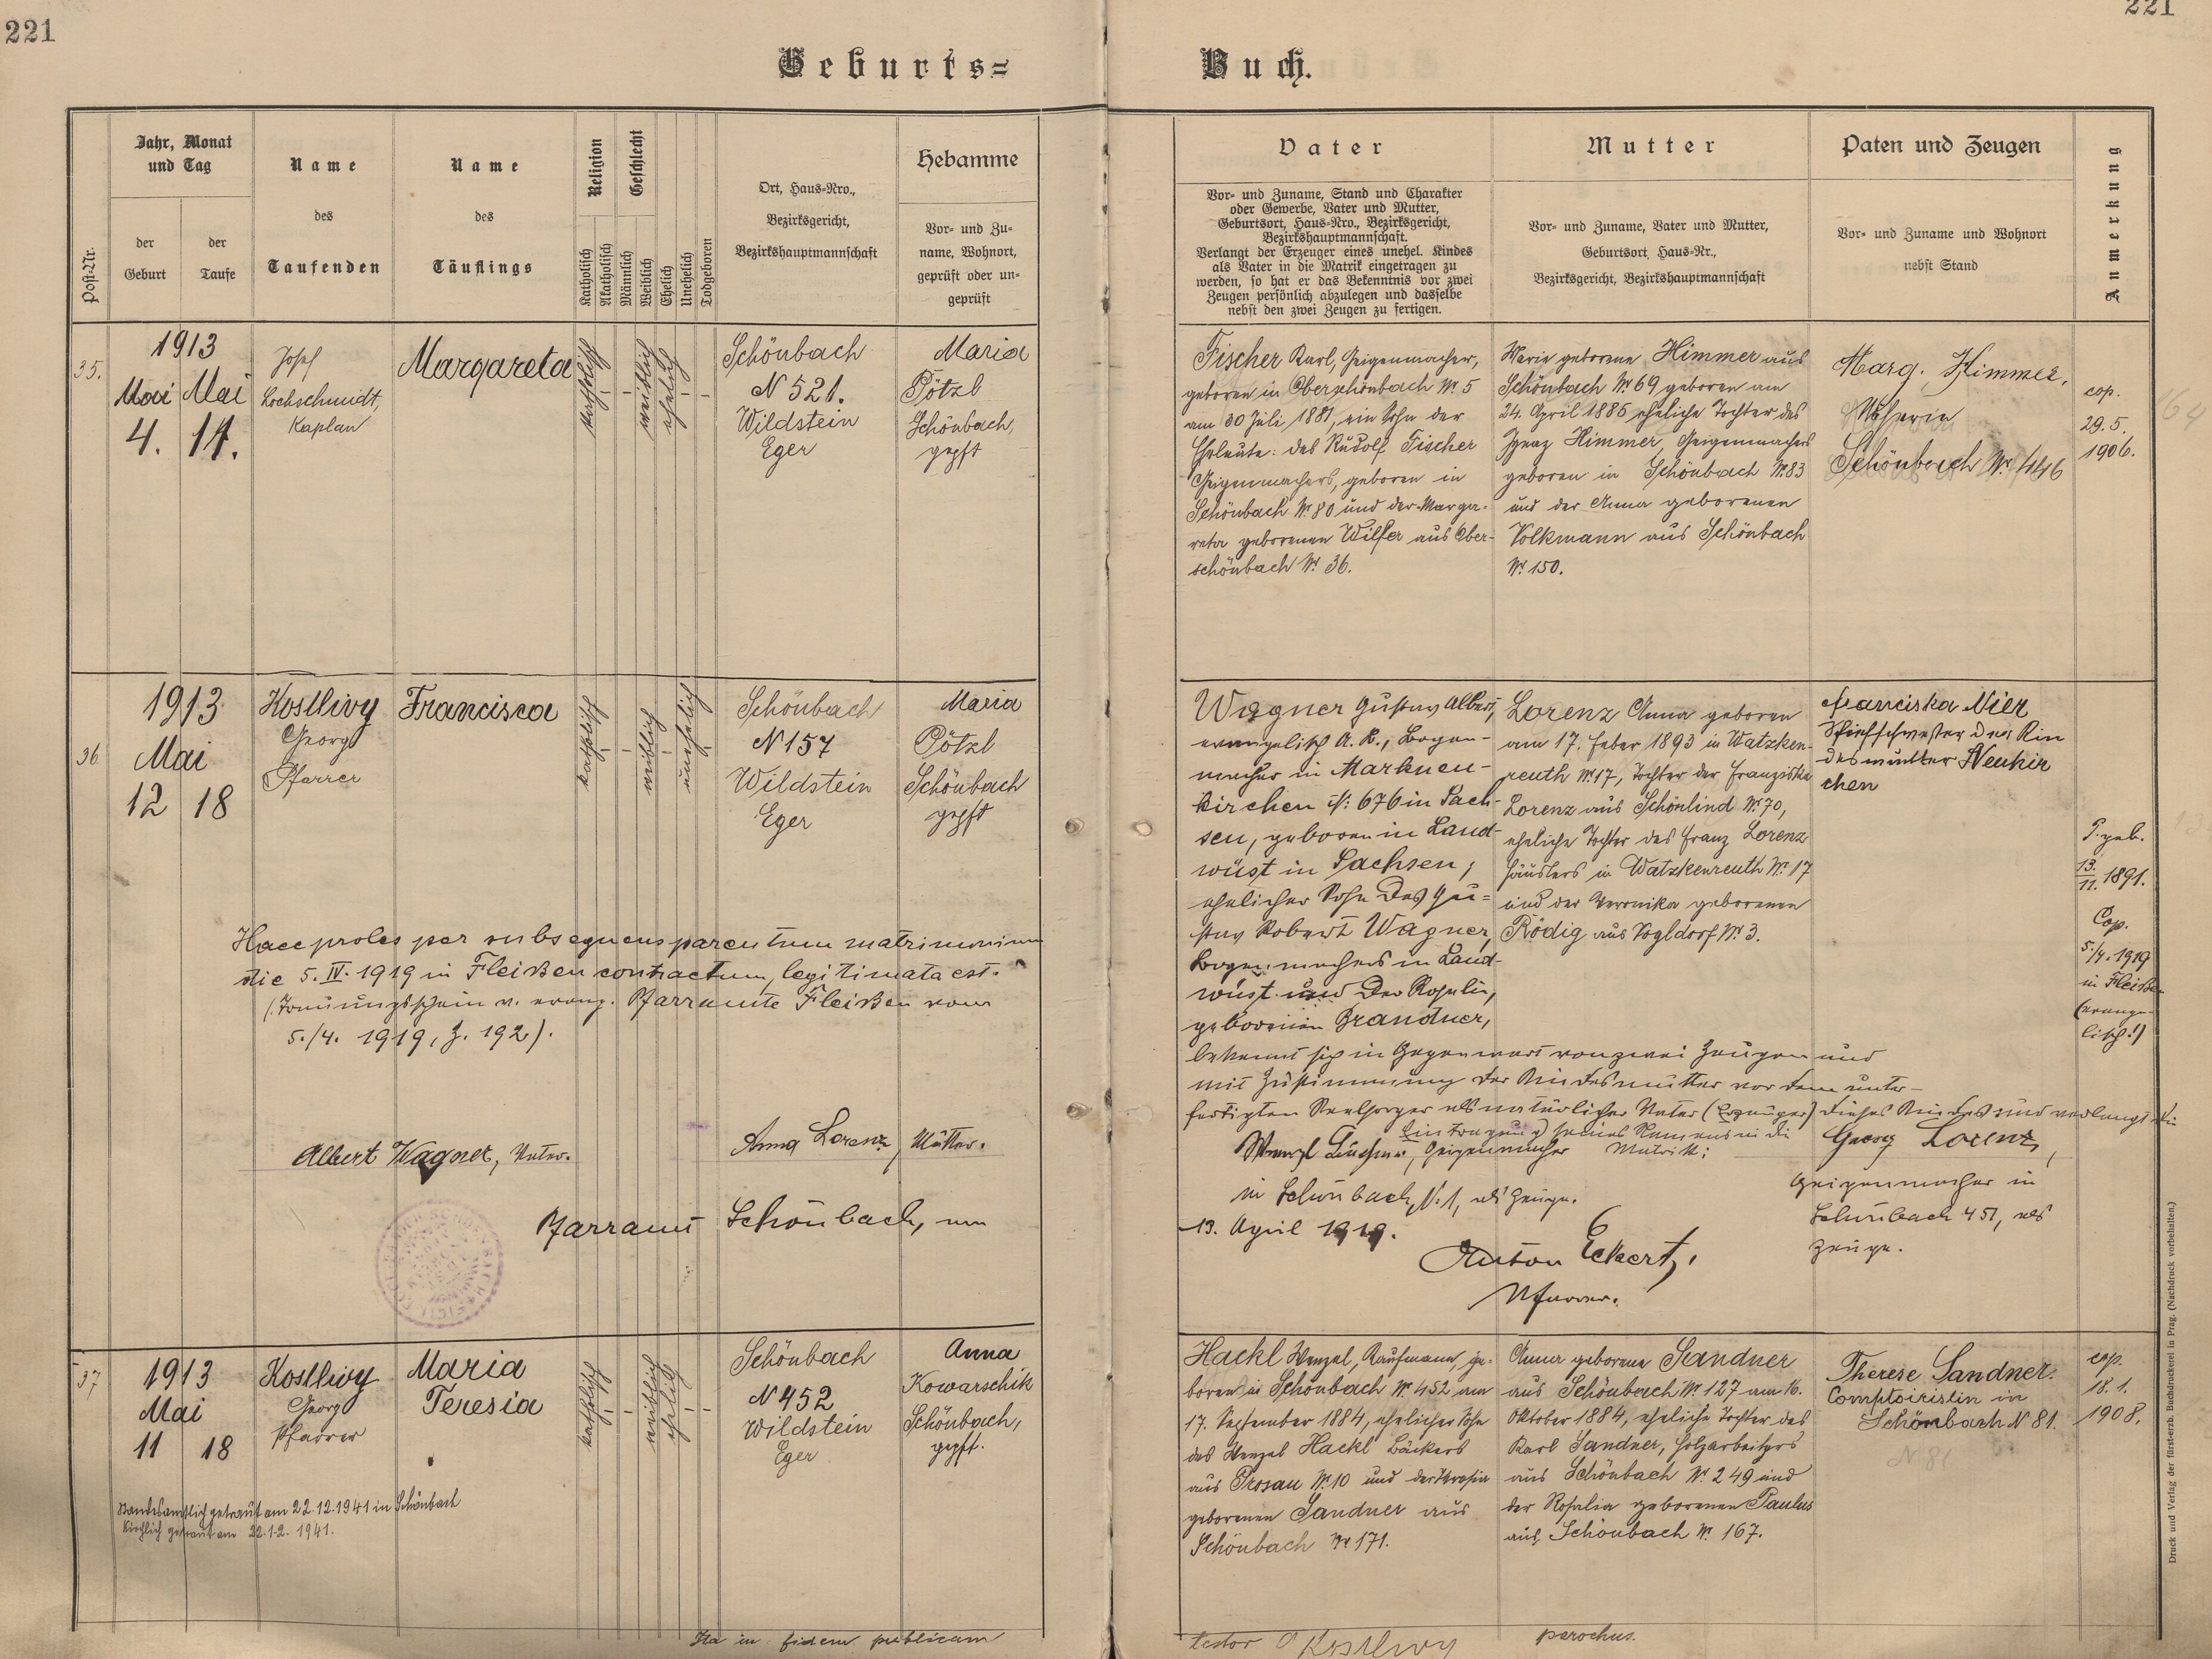 221
221
Geburts=
Buch.
Post-Nr.
Jahr, Monat
und Tag
der
Geburt
der
Taufe
Name
des
Taufenden
Name
des
Täuflings
Religion
Katholisch
Akatholisch
Geschlecht
Männlich
Weiblich
Ehelich
Unehelich
Todgeboren
Ort, Haus-Nro.,
Bezirksgericht,
Bezirkshauptmannschaft
Hebamme
Vor- und Zu-
name, Wohnort,
geprüft oder un-
geprüft
Vater
Vor- und Zuname, Stand und Charakter
oder Gewerbe, Vater und Mutter,
Geburtsort, Haus-Nro., Bezirksgericht,
Bezirkshauptmannschaft.
Verlangt der Erzeuger eines unehel. Kindes
als Vater in die Matrik eingetragen zu
werden, so hat er das Bekenntnis vor zwei
Zeugen persönlich abzulegen und dasselbe
nebst den zwei Zeugen zu fertigen.
Mutter
Vor- und Zuname, Vater und Mutter,
Geburtsort, Haus-Nr.,
Bezirksgericht, Bezirkshauptmannschaft
Paten und Zeugen
Vor- und Zuname und Wohnort
nebst Stand
Anmerkung
35.
1913
Mai Mai
4. 14.
Josef
Lochschmidt,
Kaplan
Margareta
katholisch
weiblich
ehelich
Schönbach
N 521.
Wildstein
Eger
Maria
Pötzl
Schönbach,
gepft
Fischer Karl, Geigenmacher,
geboren in Oberschönbach Nr. 5
am 30 Juli 1881, ein Sohn der
Eheleute: des Rudolf Fischer
Geigenmachers, geboren in
Schönbach Nr. 80 und der Marga-
reta geborenen Wilfer aus Ober-
schönbach Nr. 36.
Marie geborene Himmer aus
Schönbach Nr 69 geboren am
24. April 1885 eheliche Tochter des
Ignaz Himmer, Geigenmachers
geboren in Schönbach Nr. 83
und der Anna geborenen
Volkmann aus Schönbach
Nr. 150.
Marg. Himmer,
Näherin
Schönbach Nr. 446
cop.
29.5.
1906.
36
1913
Mai
12 18
Kostlivy
Georg
Pfarrer
Francisca
katholisch
weiblich
unehelich
Schönbach
N 157
Wildstein
Eger
Maria
Pötzl
Schönbach
gepft
Haec proles per subsequens parentum matrimonium
die 5. IV. 1919 in Fleißen contractum, legitimata est.
(Trauungsschein v. evang. Pfarramte Fleißen vom
5./4. 1919, Z. 192).
Albert Wagner, Vater.
Anna Lorenz, Mutter.
Pfarramt Schönbach, am
Wagner Gustav Albert,
evangelisch A. B., Bogen-
macher in Markneu-
kirchen N: 676 in Sach-
sen, geboren in Land-
wüst in Sachsen,
ehelicher Sohn des Gu=
stav Robert Wagner,
Bogenmachers in Land-
wüst und der Rosalin,
geborenen Brandner,
bekennt sich in Gegenwart von zwei Zeugen und
mit Zustimmung der Kindesmutter vor dem unter-
fertigten Seelsorger als natürlicher Vater (Erzeuger) dieses Kindes und verlangt die
Eintragung seines Namens in die
Matrik:
Lorenz Anna geboren
am 17. Feber 1893 in Watzken-
reuth Nr. 17, Tochter der Franziska
Lorenz aus Schönlind Nr. 70,
eheliche Tochter des Franz Lorenz
Häuslers in Watzkenreuth Nr. 17
und der Veronika geborenen
Rödig aus Vogldorf Nr. 3.
Franciska Nier
Stiefschwester der Kin
desmutter Neukir
chen
P. geb.
13.
11. 1891.
Cop.
5./4. 1919
in Fleißen
(evange-
lisch!)
Wenzl, Geigenmacher
in Schönbach, N: 1, als Zeuge.
13. April 1919.
Anton Eckert,
Pfarrer.
Georg Lorenz,
Geigenmacher in
Schönbach 451, als
Zeuge.
37
1913
Mai
11 18
Kostlivy
Georg
Pfarrer
Maria
Teresia
katholisch
weiblich
ehelich
Schönbach
N 452
Wildstein
Eger
Anna
Kowarschik
Schönbach,
gepft.
Standesamtlich getraut am 22.12.1941 in Schönbach
Kirchlich getraut am 22.12. 1941.
Hackl Wenzel, Kaufmann, ge-
boren in Schönbach Nr. 452 am
17. September 1884, ehelicher Sohn
des Wenzel Hackl Bäckers
aus Prosau Nr. 10 und der Theresia
geborenen Sandner aus
Schönbach Nr 171.
Anna geborene Sandner
aus Schönbach Nr. 127 am 16.
Oktober 1884, eheliche Tochter des
Karl Sandner, Holzarbeiters
aus Schönbach Nr. 249 und
der Rosalia geborenen Paulus
aus Schönbach Nr. 167.
Therese Sandner.
Comptoiristin in
Schönbach N 81.
N 81
cop.
18.1.
1908.
Ita in fidem publicam
testor G Kostlivy parochus.
Druck und Verlag der fürst-erzb. Buchdruckerei in Prag. (Nachdruck vorbehalten.)